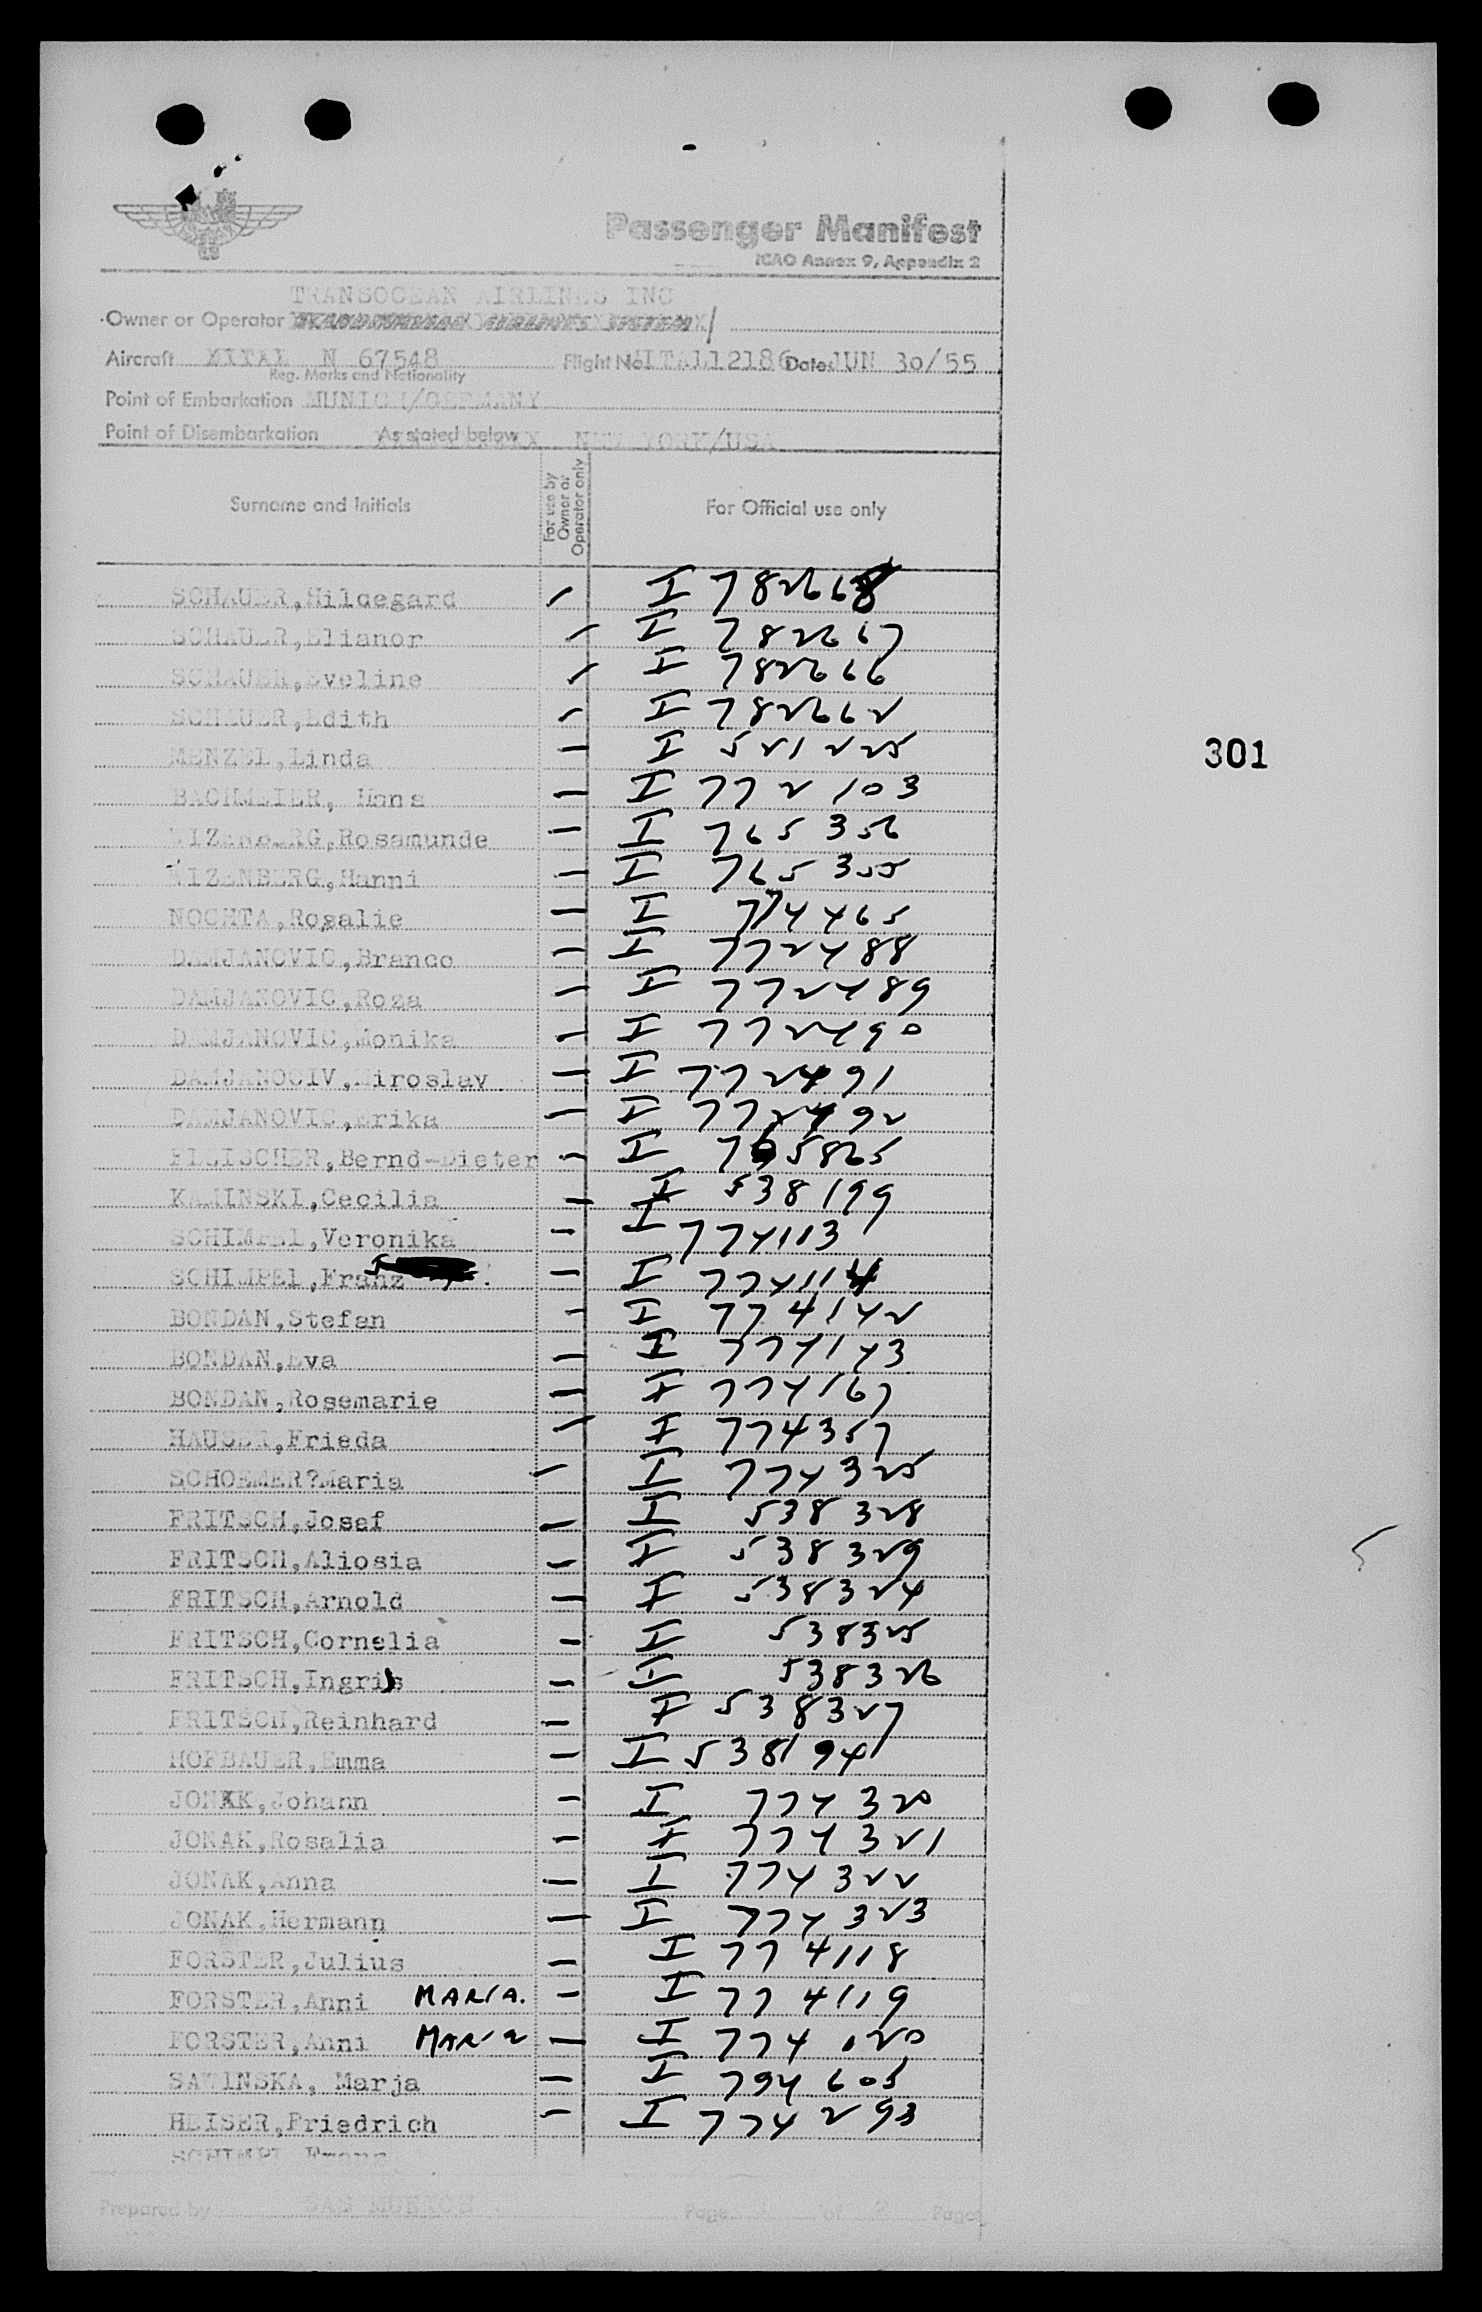 Passenger Manifest
ICAO Annex 9, Appendix 2
TRANSOCEAN AIRLINES INC
Owner or Operator
Aircraft N 67548 Flight No. Date JUN 30/55
Reg. Marks and Nationality
Point of Embarkation MUNICH/GERMANY
Point of Disembarkation As stated below NEW YORK/USA
Surname and Initials For use by Owner or Operator only For Official use only
SCHAUER, Hildegard I 782668
SCHAUER, Elianor I 782667
SCHAUER, Eveline I 782666
SCHAUER, Edith I 782662
MENZEL, Linda I 521225
BACHMEIER, Hans I 772103
WIZENBERG, Rosamunde I 765356
WIZENBERG, Hanni I 765355
NOCHTA, Rosalie I 774465
DAMJANOVIC, Branco I 772488
DAMJANOVIC, Roza I 772489
DAMJANOVIC, Monika I 772490
DAMJANOCIV, Miroslav I 772491
DAMJANOVIC, Erika I 772492
FLEISCHER, Bernd-Dieter I 765865
KAMINSKI, Cecilia I 538199
SCHIMPEL, Veronika I 774113
SCHIMPEl, Franz I 774114
BONDAN, Stefan I 774142
BONDAN, Eva I 774143
BONDAN, Rosemarie I 774167
Frieda I 774357
SCHOEMER?Maria I 774325
FRITSCH, Josef I 538328
FRITSCH, Aliosia I 538329
FRITSCH, Arnold I 538324
FRITSCH, Cornelia I 538325
FRITSCH, I 538326
FRITSCH, Reinhard I 538327
HOFBAUER, Emma I 538194
JONAK, Johann I 774320
JONAK, Rosalia I 774321
JONAK, Anna I 774322
JONAK, Hermann I 774323
FORSTER, Julius I 774118
FORSTER, Anni MARIA. I 774119
FORSTER, Anni MARIA I 774120
SAWINSKA, Marja I 794605
HEISER, Friedrich I 774293
SCHIMPL Franz
Prepared by Page of 8 Pages
301